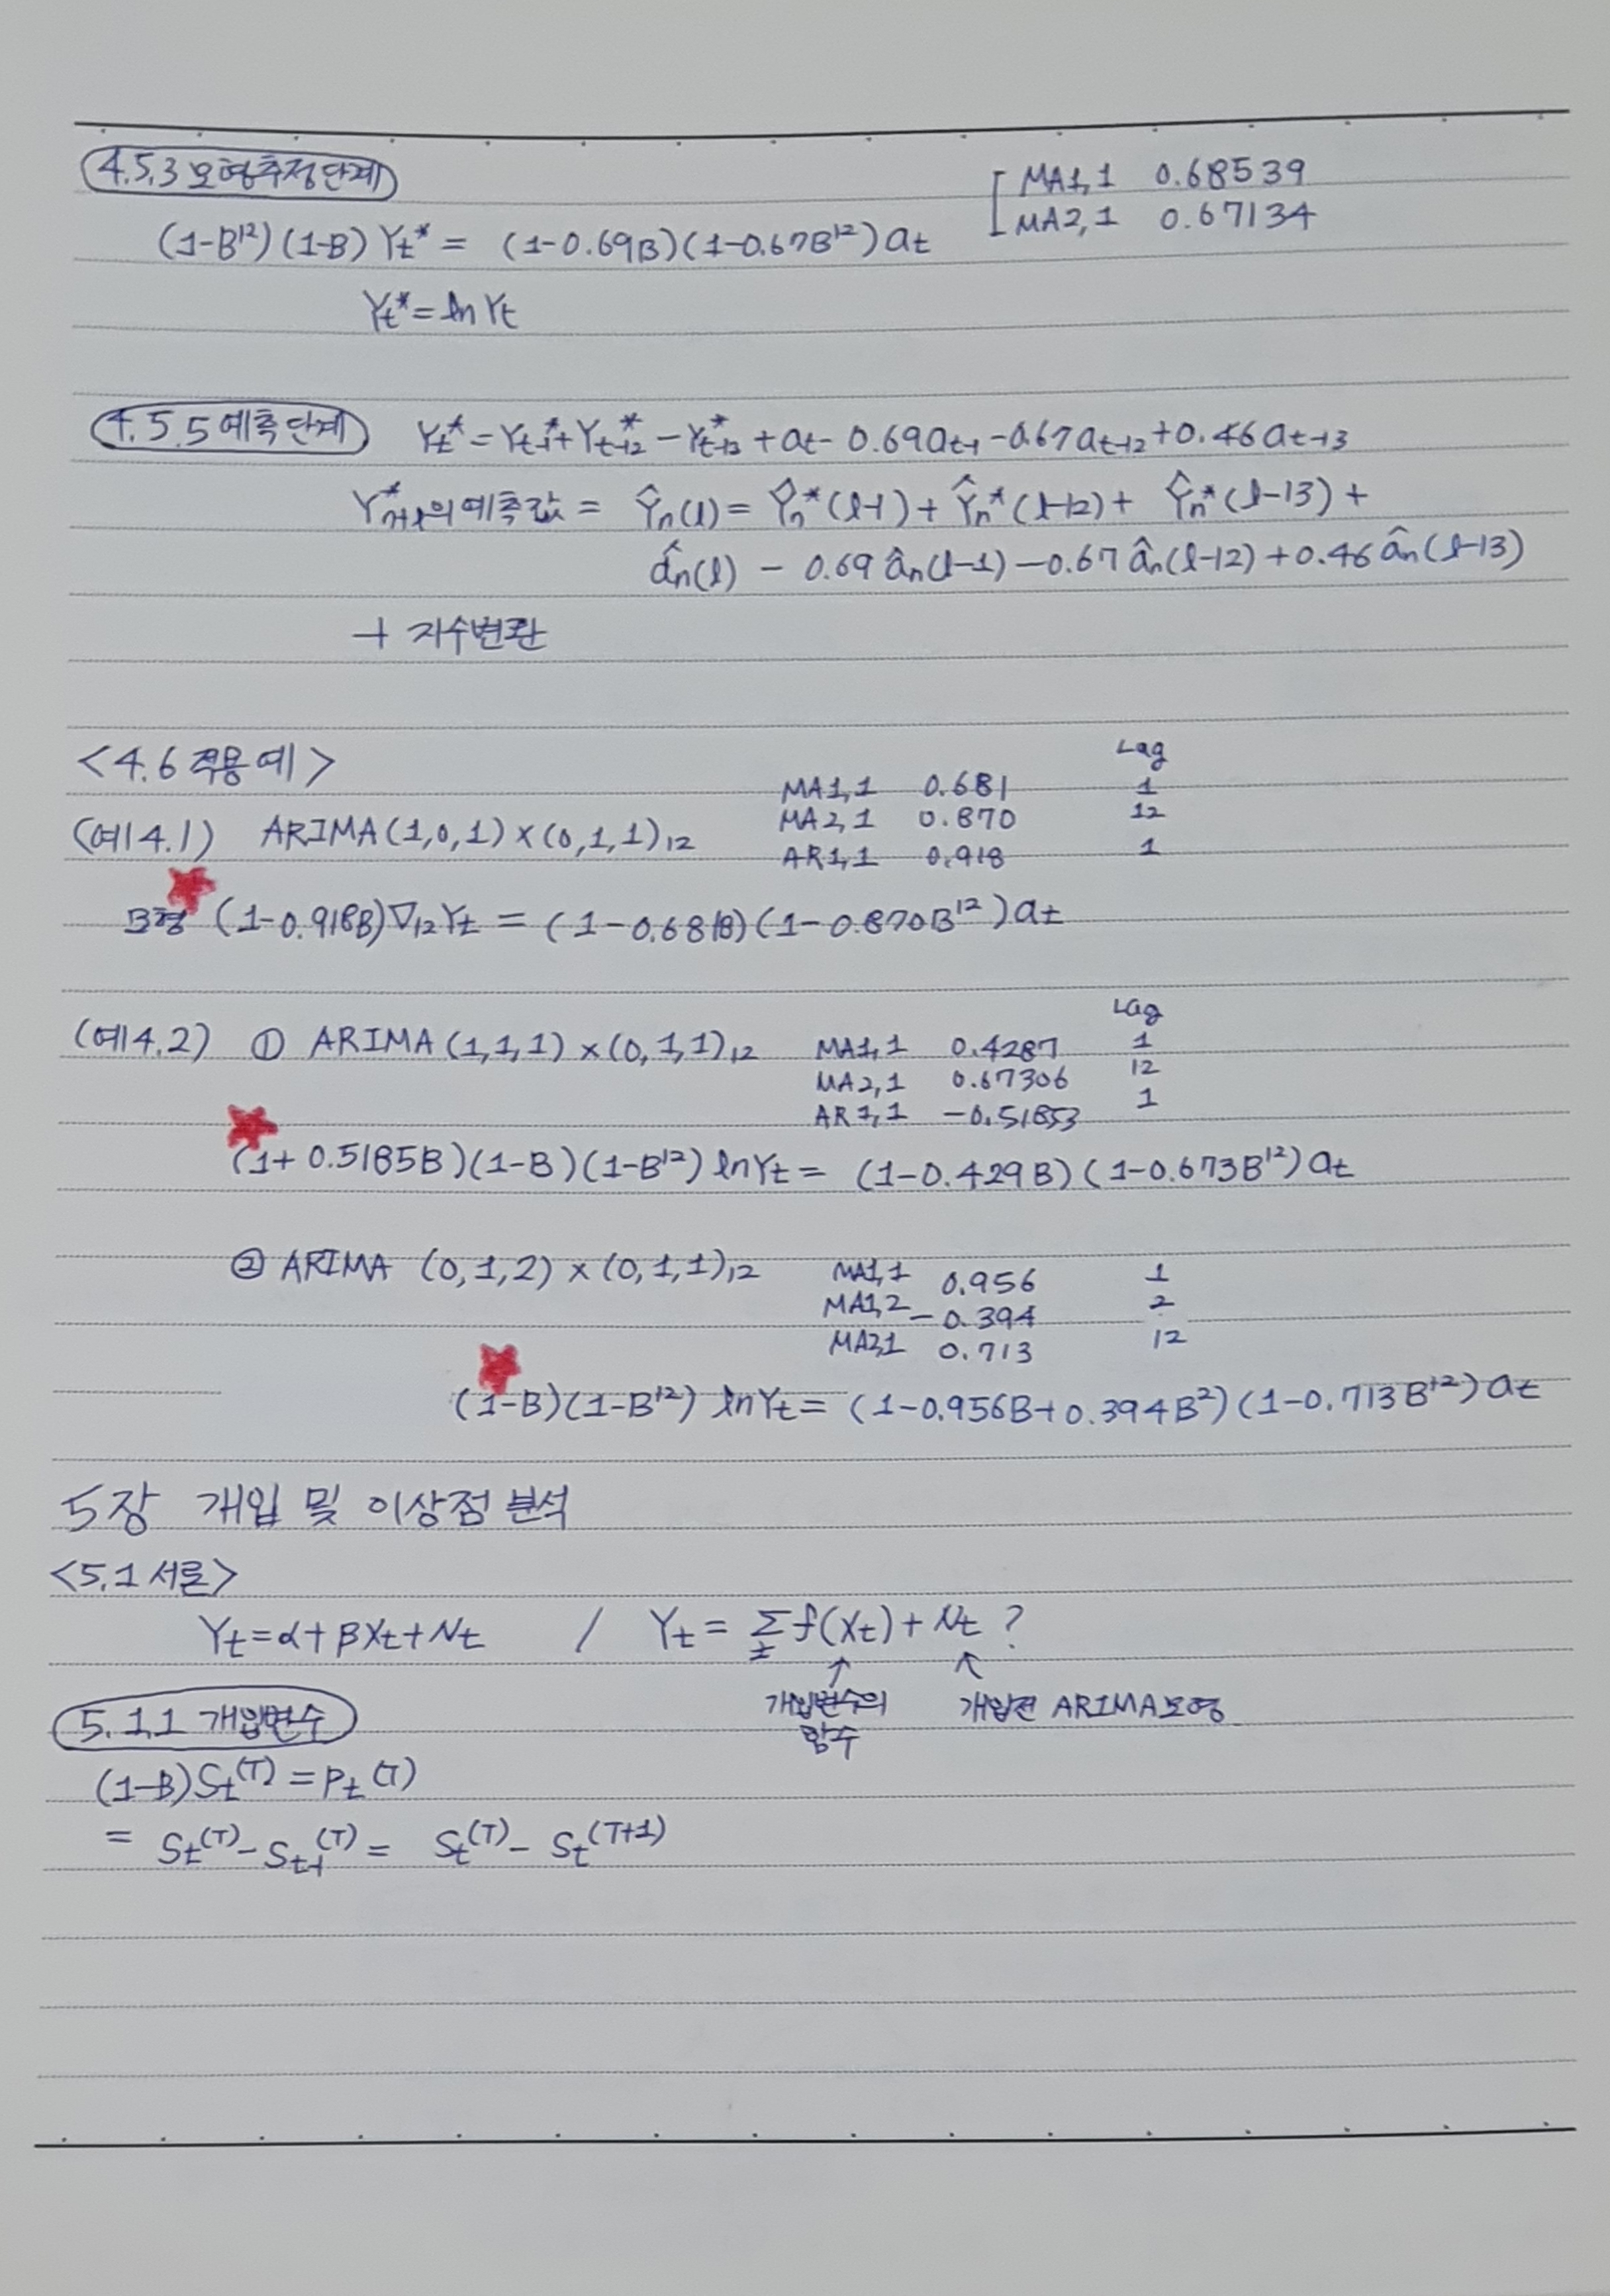 4.5.3 모형추정단계
MA1,1 0.68539
MA2,1 0.67134
(1-B¹²)(1-B)Yt* = (1-0.69B)(1-0.67B¹²)at
Yt* = ln Yt
4.5.5 예측단계 Yt* = Yt-1* + Yt-12* - Yt-13* + at - 0.69at-1 - 0.67at-12 + 0.46at-13
Y*n+l의 예측값 = Ŷn(l) = Ŷn*(l-1) + Ŷn*(l-12) + Ŷn*(l-13) +
ân(l) - 0.69 ân(l-1) - 0.67 ân(l-12) + 0.46 ân(l-13)
+ 지수변환
<4.6 적용 예>
Lag
MA1,1 0.681 1
MA2,1 0.870 12
(예4.1) ARIMA(1,0,1)×(0,1,1)12
AR1,1 0.918 1
모형 (1-0.918B)∇12Yt = (1-0.681B)(1-0.870B¹²)at
Lag
(예4.2) ① ARIMA(1,1,1)×(0,1,1)12 MA1,1 0.4287 1
MA2,1 0.67306 12
AR1,1 -0.51853 1
(1+0.5185B)(1-B)(1-B¹²) lnYt = (1-0.429B)(1-0.673B¹²)at
② ARIMA (0,1,2)×(0,1,1)12 MA1,1 0.956 1
MA1,2 -0.394 2
MA2,1 0.713 12
(1-B)(1-B¹²) lnYt = (1-0.956B+0.394B²)(1-0.713B¹²)at
5장 개입 및 이상점 분석
<5.1 서론>
Yt = α+βXt+Nt / Yt = Σt f(Xt) + Nt ?
↑ ↖
개입변수의 개입전 ARIMA모형
함수
5.1.1 개입변수
(1-B)St(T) = Pt(T)
= St(T) - St-1(T) = St(T) - St(T+1)